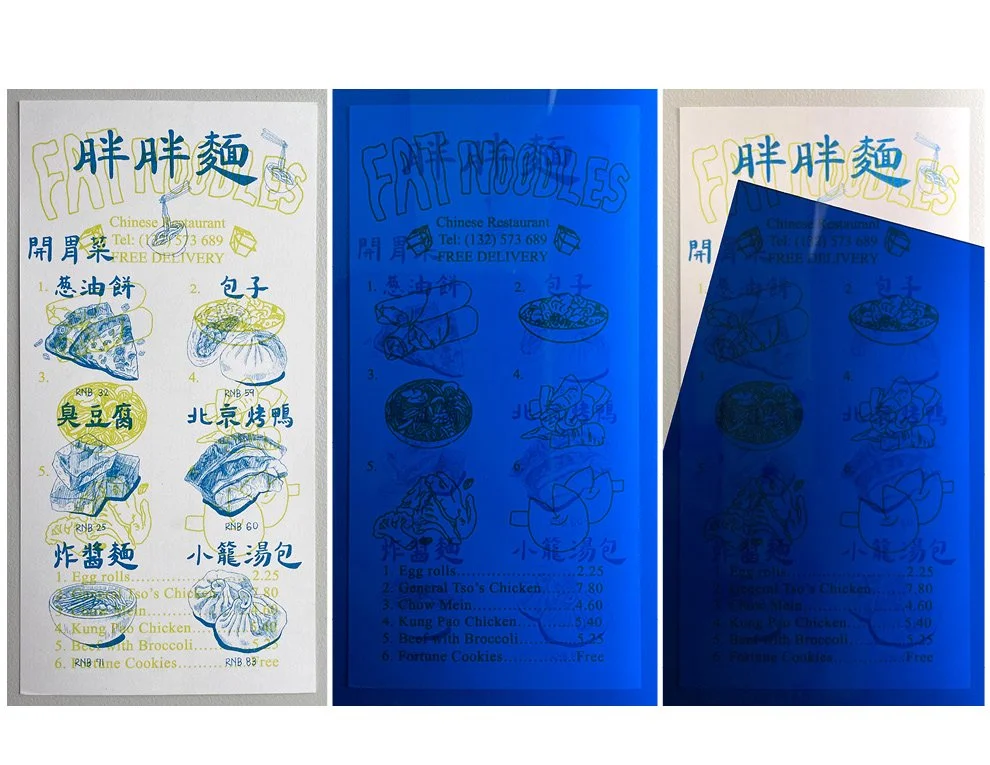 胖胖麵
FAT NOODLES
Chinese Restaurant
Tel: (132) 573 689
FREE DELIVERY
開胃菜
1. 葱油餅
2. 包子
RNB 32
RNB 59
3. 臭豆腐
4. 北京烤鴨
5.
RNB 25
RNB 60
炸醬麵
小籠湯包
1. Egg rolls 2.25
2. General Tso's Chicken 7.80
3. Chow Mein 4.60
4. Kung Pao Chicken 5.40
5. Beef with Broccoli 5.25
6. Fortune Cookies Free
RNB 83
胖胖麵
FAT NOODLES
Chinese Restaurant
Tel: (132) 573 689
FREE DELIVERY
開胃菜
1. 葱油餅
2. 包子
3.
4. 北京烤鴨
5.
6.
炸醬麵
小籠湯包
1. Egg rolls 2.25
2. General Tso's Chicken 7.80
3. Chow Mein 4.60
4. Kung Pao Chicken 5.40
5. Beef with Broccoli 5.25
6. Fortune Cookies Free
胖胖麵
FAT NOODLES
Chinese Restaurant
Tel: (132) 573 689
FREE DELIVERY
開胃菜
1. 葱油餅
2. 包子
4. 北京烤鴨
炸醬麵
小籠湯包
1. Egg rolls 2.25
2. General Tso's Chicken 7.80
3. Chow Mein 4.60
4. Kung Pao Chicken 5.40
5. Beef with Broccoli 5.25
6. Fortune Cookies Free